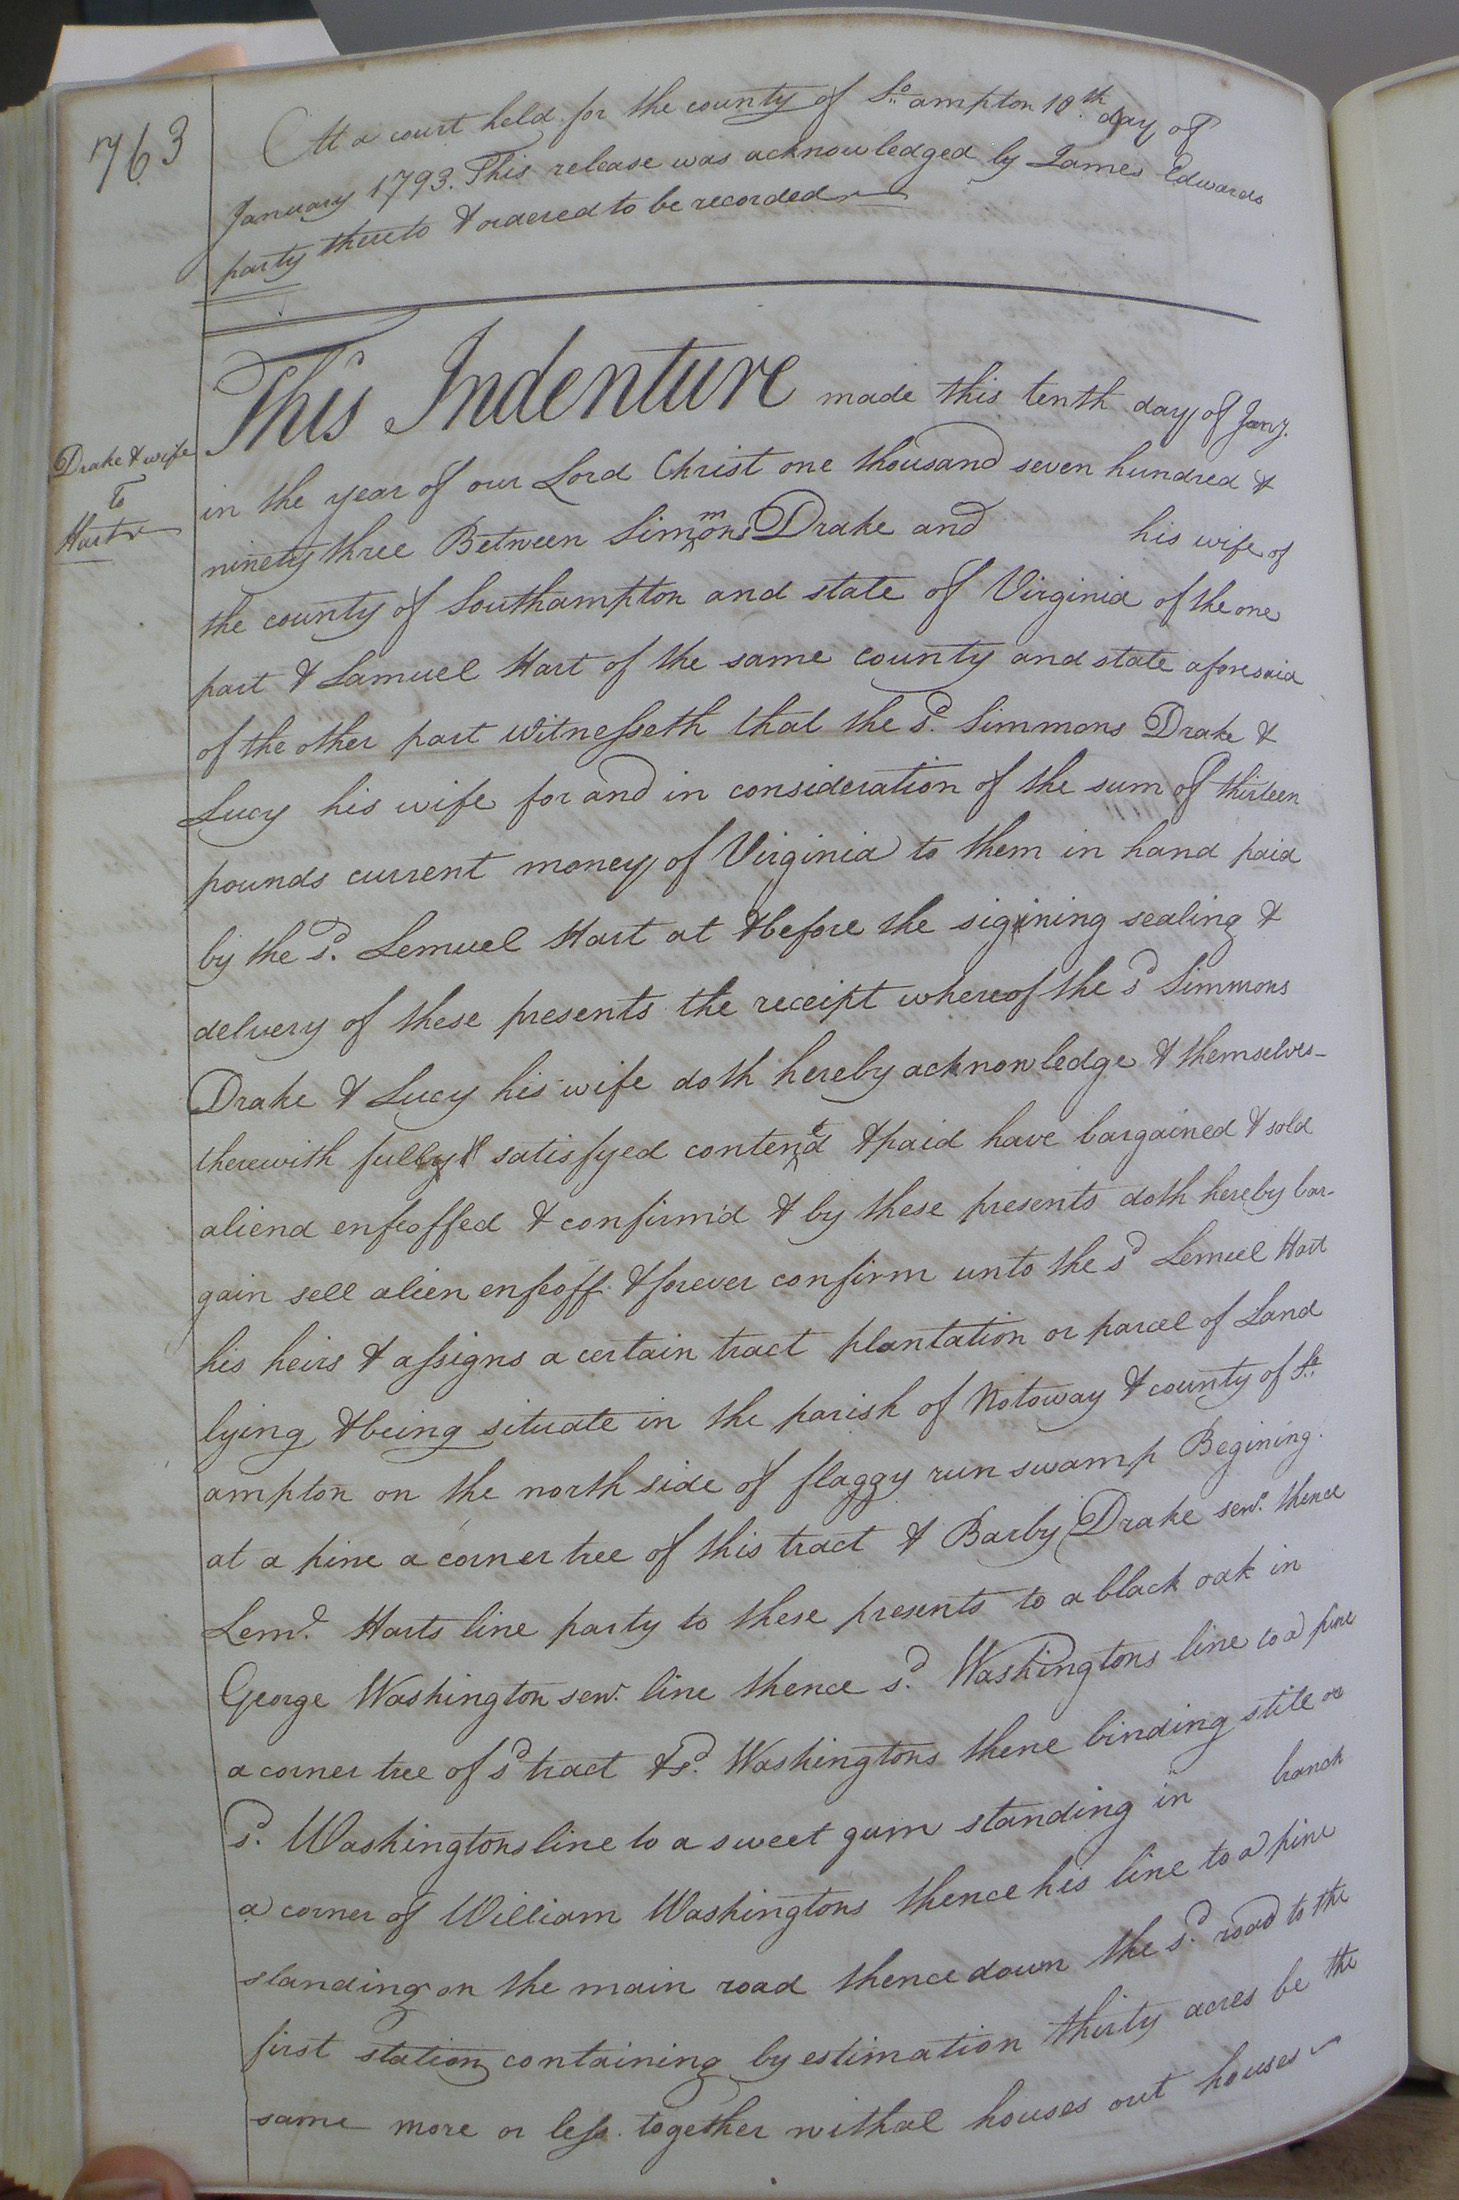 763
At a court held for the county of So. ampton 10th. day of
January 1793. This release was acknowledged by James Edwards
party thereto & ordered to be recorded
This Indenture made this tenth day of Jany.
Drake & wife
to
Hart
in the year of our Lord Christ one thousand seven hundred &
ninety three Between Simmons Drake and his wife of
the county of Southampton and state of Virginia of the one
part & Lamuel Hart of the same county and state aforesaid
of the other part Witnesseth that the sd. Simmons Drake &
Lucy his wife for and in consideration of the sum of thirteen
pounds current money of Virginia to them in hand paid
by the sd. Lemuel Hart at & before the sigining sealing &
delvery of these presents the receipt whereof the sd Simmons
Drake & Lucy his wife doth hereby acknowledge & themselves
therewith fully satisfyed contented & paid have bargained & sold
aliend enfeoffed & confirm'd & by these presents doth hereby bar-
gain sell alien enfeoff & forever confirm unto the sd Lemuel Hart
his heirs & assigns a certain tract plantation or parcel of Land
lying & being situate in the parish of Notoway & county of So.
ampton on the north side of flaggy run swamp Begining
at a pine a corner tree of this tract & Barby Drake senr. thence
Leml. Harts line party to these presents to a black oak in
George Washington senr. line thence sd. Washingtons line to a pine
a corner tree of sd tract & sd. Washingtons thence binding stile on
sd. Washingtons line to a sweet gum standing in branch
a corner of William Washingtons thence his line to a pine
standing on the main road thence down the sd. road to the
first station containing by estimation thirty acres be the
same more or less together withal houses out houses